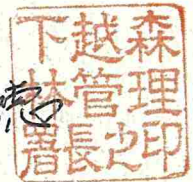 下越森
林管理
署長之印